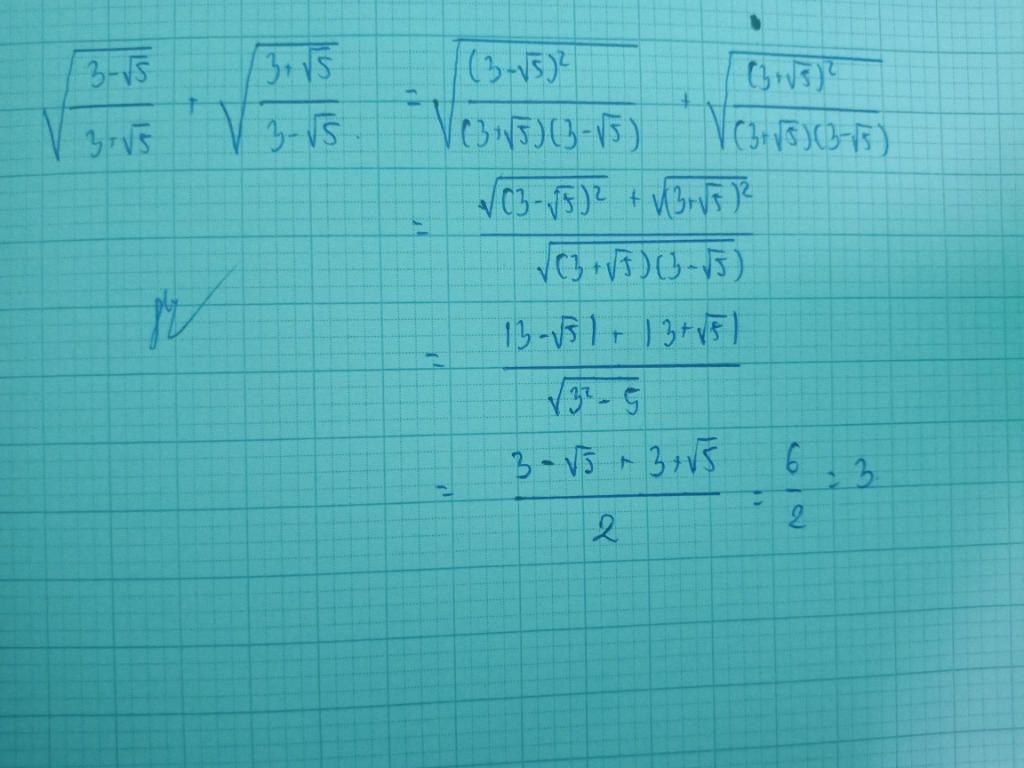 √((3-√5)/(3+√5)) + √((3+√5)/(3-√5)) = √((3-√5)²/((3+√5)(3-√5))) + √((3+√5)²/((3+√5)(3-√5)))
= (√((3-√5)²) + √((3+√5)²))/√((3+√5)(3-√5))
= (|3-√5| + |3+√5|)/√(3²-5)
= (3-√5 + 3+√5)/2 = 6/2 = 3